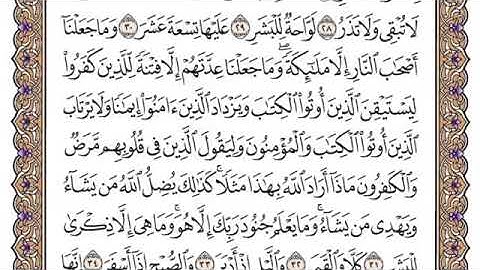 لَا تُبۡقِي وَلَا تَذَرُ ٢٨ لَوَّاحَةٞ لِّلۡبَشَرِ ٢٩ عَلَيۡهَا تِسۡعَةَ عَشَرَ ٣٠ وَمَا جَعَلۡنَآ
أَصۡحَٰبَ ٱلنَّارِ إِلَّا مَلَٰٓئِكَةٗۖ وَمَا جَعَلۡنَا عِدَّتَهُمۡ إِلَّا فِتۡنَةٗ لِّلَّذِينَ كَفَرُواْ
لِيَسۡتَيۡقِنَ ٱلَّذِينَ أُوتُواْ ٱلۡكِتَٰبَ وَيَزۡدَادَ ٱلَّذِينَ ءَامَنُوٓاْ إِيمَٰنٗا وَلَا يَرۡتَابَ
ٱلَّذِينَ أُوتُواْ ٱلۡكِتَٰبَ وَٱلۡمُؤۡمِنُونَ وَلِيَقُولَ ٱلَّذِينَ فِي قُلُوبِهِم مَّرَضٞ
وَٱلۡكَٰفِرُونَ مَاذَآ أَرَادَ ٱللَّهُ بِهَٰذَا مَثَلٗاۚ كَذَٰلِكَ يُضِلُّ ٱللَّهُ مَن يَشَآءُ
وَيَهۡدِي مَن يَشَآءُۚ وَمَا يَعۡلَمُ جُنُودَ رَبِّكَ إِلَّا هُوَۚ وَمَا هِيَ إِلَّا ذِكۡرَىٰ
لِلۡبَشَرِ ٣١ كَلَّا وَٱلۡقَمَرِ ٣٢ وَٱلَّيۡلِ إِذۡ أَدۡبَرَ ٣٣ وَٱلصُّبۡحِ إِذَآ أَسۡفَرَ ٣٤ إِنَّهَا